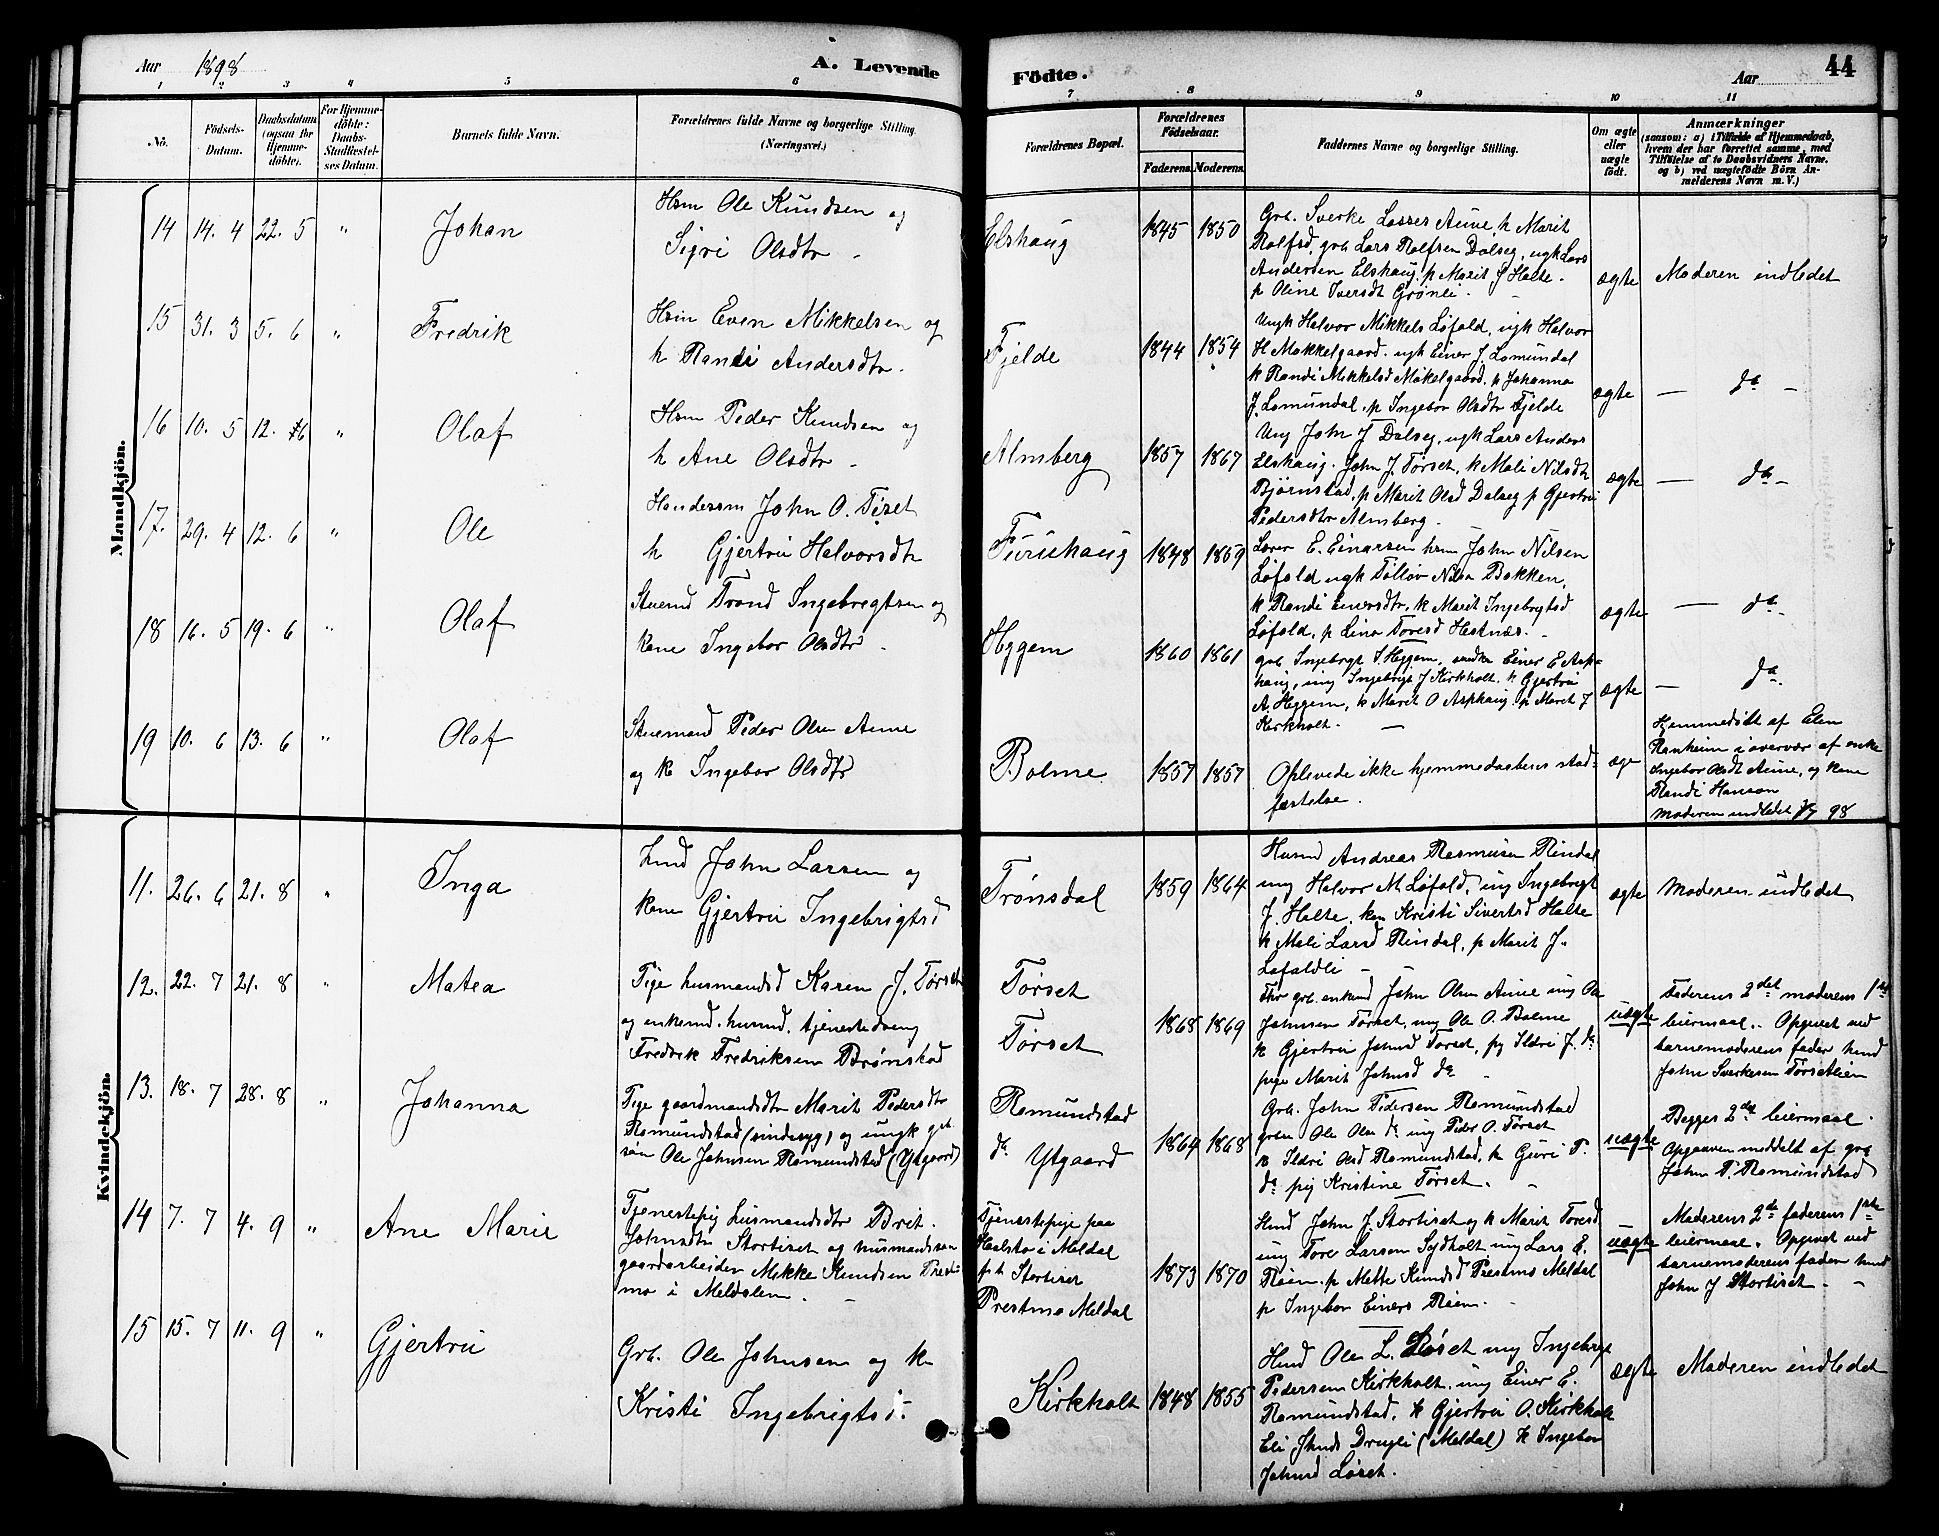 Aar 1898
A. Levende
Födte.
Aar
44
1 2 3 4 5 6 7 8 9 10 11
No.
Födsels-
Datum.
Daabsdatum
(ogsaa for
Hjemme-
döbte).
For Hjemme-
döbte:
Daabs-
Stadfæstel-
ses Datum.
Barnets fulde Navn.
Forældrenes fulde Navne og borgerlige Stilling.
(Næringsvei.)
Forældrenes Bopæl.
Forældrenes
Födselsaar.
Faderens. Moderens.
Faddernes Navne og borgerlige Stilling.
Om ægte
eller
uægte
født.
Anmærkninger
(saasom: a) i Tilfælde af Hjemmedaab,
hvem der har forrettet samme, med
Tilföielse af to Daabsvidners Navne.
og b) ved uægtefödte Börn An-
melderens Navn m. V.)
Mandkjön.
14 14. 4 22. 5 " Johan
Hsm Ole Knudsen og
Sigri Olsdtr -
Elshaug 1845 1850
Grb. Sverke Lasses Aune, h Marit
Rolfsd, grb Lars Rolfsen Dalseg, ugk Lars
Andersen Elshaug, p Marit J Halte.
p Oline Iversdt Grönli. -
ægte Moderen indledet
15 31. 3 5. 6 " Fredrik
Hsm Even Mikkelsen og
h Randi Andersdtr.
Fjelde 1844 1854
Ungk Halvor Mikkels Løfald, ugk Halvor
H Mokkelgaard. ugk Einer J. Lomundal
k Randi Mikkelsd Mokelgaard, p Johanna
J. Lomundal, p Ingebor Olsdtr Fjelde
ægte — da —
16 10. 5 12. 6 " Olaf
Hsm Peder Knudsen og
h Ane Olsdtr -
Almberg 1857 1867
Ung John J Dalseg, ugk Lars Anders
Elshaug. John J. Tørset, k Mali Nilsdtr
Bjørnstad, p Marit Olsd Dalseg p Gjertru
Pedersdtr Almberg.
ægte — da -
17. 29. 4 12. 6 " Ole
Handersm John O. Tøset
h Gjertru Halvorsdtr
Furuhaug 1848 1859
Lærer E. Einarsen hsm John Nilsen
Løfald ugk Tøllöv Nilsn Bakken,
k Randi Einersdtr, k Marit Ingebrgtsd
Løfald, p Lina Toresd Hestnæs. -
ægte — da
18 16. 5 19. 6 " Olaf
Stuemd Trond Ingebregtsen og
kone Ingebor Olsdtr -
Hyggem 1860 1861
grb. Ingebrgt T. Heggem, Einer E Asp-
haug, ung Ingebrgt J Kirkholt. k Gjertru
A. Heggem, k Marit O Asphaug. p Maret J
Kirkholt. —
ægte — da
19 10. 6 13. 6 " Olaf
Stuemand Peder Olsen Aune
og k Ingebor Olsdtr
Bolme 1857 1857
Oplevede ikke hjemmedaabens stad-
fæstelse.
æge
Hjemmedøbt af Elen
Ranheim i overvær af enke
Ingebor Olsdt Aune, og kone
Randi Hanson
Moderen indledet 98
Kvindekjön.
11. 26. 6 21. 8 " Inga
John Larsen og
kone Gjertru Ingebrigtsd
Trønsdal 1859 1864
Husmd Andreas Rasmusen Rindal
ung Halvor M. Løfald, ung Ingebrigt
J. Halte, kon Kristi Sivertsd Halte
k Mali Larsd Rindal, p Marit J.
Løfaldli - -
ægte Moderen indledet
12. 22. 7 21. 8 " Matea
Pige husmandsd Karen J. Tørset
og enkemd. husmd. tjenestedreng
Fredrik Fredriksen Brønstad
Tørset
Tørset 1868 1869
grb. enkmd John Olsen Aune ung Ole
Johnsen Tørset, ung Ole O. Bolme
k Gjertru Johnsd Tørset, pg Ildri J. da
pige Marit Johnsd da -
uægte
Faderens 2det moderens 1ste
leiermaal. Opgivet ved
barnemoderens fader hmd
John Sverkesen Tørsetlien
13. 18. 7 28. 8 " Johanna
Pige gaardmandsdtr Marit Pedersdtr
Romundstad (sindssyg) og ungk grb
søn Ole Johnsen Romundstad (Ytgaard)
Romundstad
da Ytgaard 1864 1868
Grb. John Pedersen Romundstad
grbm Ole Olsn da ung Peder O. Tørset
k Ildri Olsd Romundstad, k Guri T.
da pig Kristine Tørset. -
uægte
Begges 2det leiermaal.
Opgaven meddelt af grb
John P. Romundstad
14 7. 7 4. 9 " Ane Marie
Tjenestepig husmandsdtr Brit
Johnsdtr Stortiset og husmandssøn
gaardarbeider Mikkel Knudsen Prest-
mo i Meldalen. -
Tjenestepige paa
i Meldal
Prestmo Meldal 1873 1870
Hmd John J. Stortiset og k Marit Toresd
ung Tore Larsen Sydholt ung Lars E.
Røen. p Mette Knudsd Prestmo Meldal
p Ingebor Einers Røen. -
uægte
Moderens 2de faderens 1ste
leiermaal. Opgivet ved
barnemoderens fader hmd
John J Stortiset. -
15 15. 7 11. 9 " Gjertru
Grb. Ole Johnsen og k
Kristi Ingebrigtsd.
Kirkholt 1848 1855
Hmd Ole L. Løset ung Ingebrgt
Pedersen Kirkholt, ung Einer E.
Romundstad, k Gjertru O. Kirkholt
Eli Drugli (Meldal) k Ingebor
Johnsd Løset.
ægte Moderen indledet